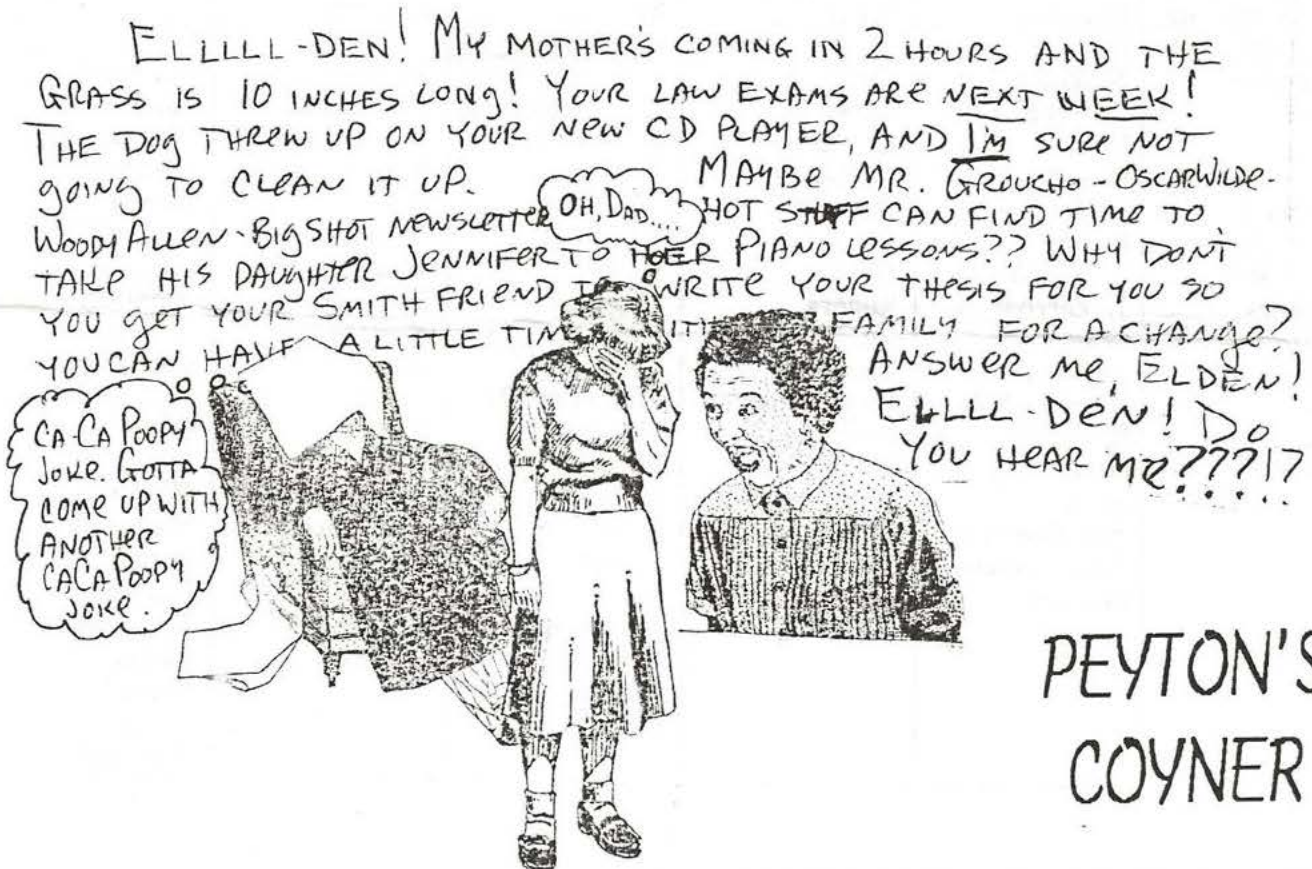 ELLLLL-DEN! MY MOTHER'S COMING IN 2 HOURS AND THE
GRASS IS 10 INCHES LONG! YOUR LAW EXAMS ARE NEXT WEEK!
THE DOG THREW UP ON YOUR NEW CD PLAYER, AND I'M SURE NOT
GOING TO CLEAN IT UP. MAYBE MR. GROUCHO-OSCARWILDE-
WOODY ALLEN-BIGSHOT NEWSLETTER HOT STUFF CAN FIND TIME TO
TAKE HIS DAUGHTER JENNIFER TO HER PIANO LESSONS?? WHY DON'T
YOU GET YOUR SMITH FRIEND WRITE YOUR THESIS FOR YOU SO
YOU CAN HAVE A LITTLE TIM ITH FAMILY FOR A CHANGE?
ANSWER ME, ELDEN!
ELLLL-DEN! DO
YOU HEAR ME???!?
OH, DAD....
CA-CA POOPY
JOKE. GOTTA
COME UP WITH
ANOTHER
CACA POOPY
JOKE.
PEYTON'S
COYNER